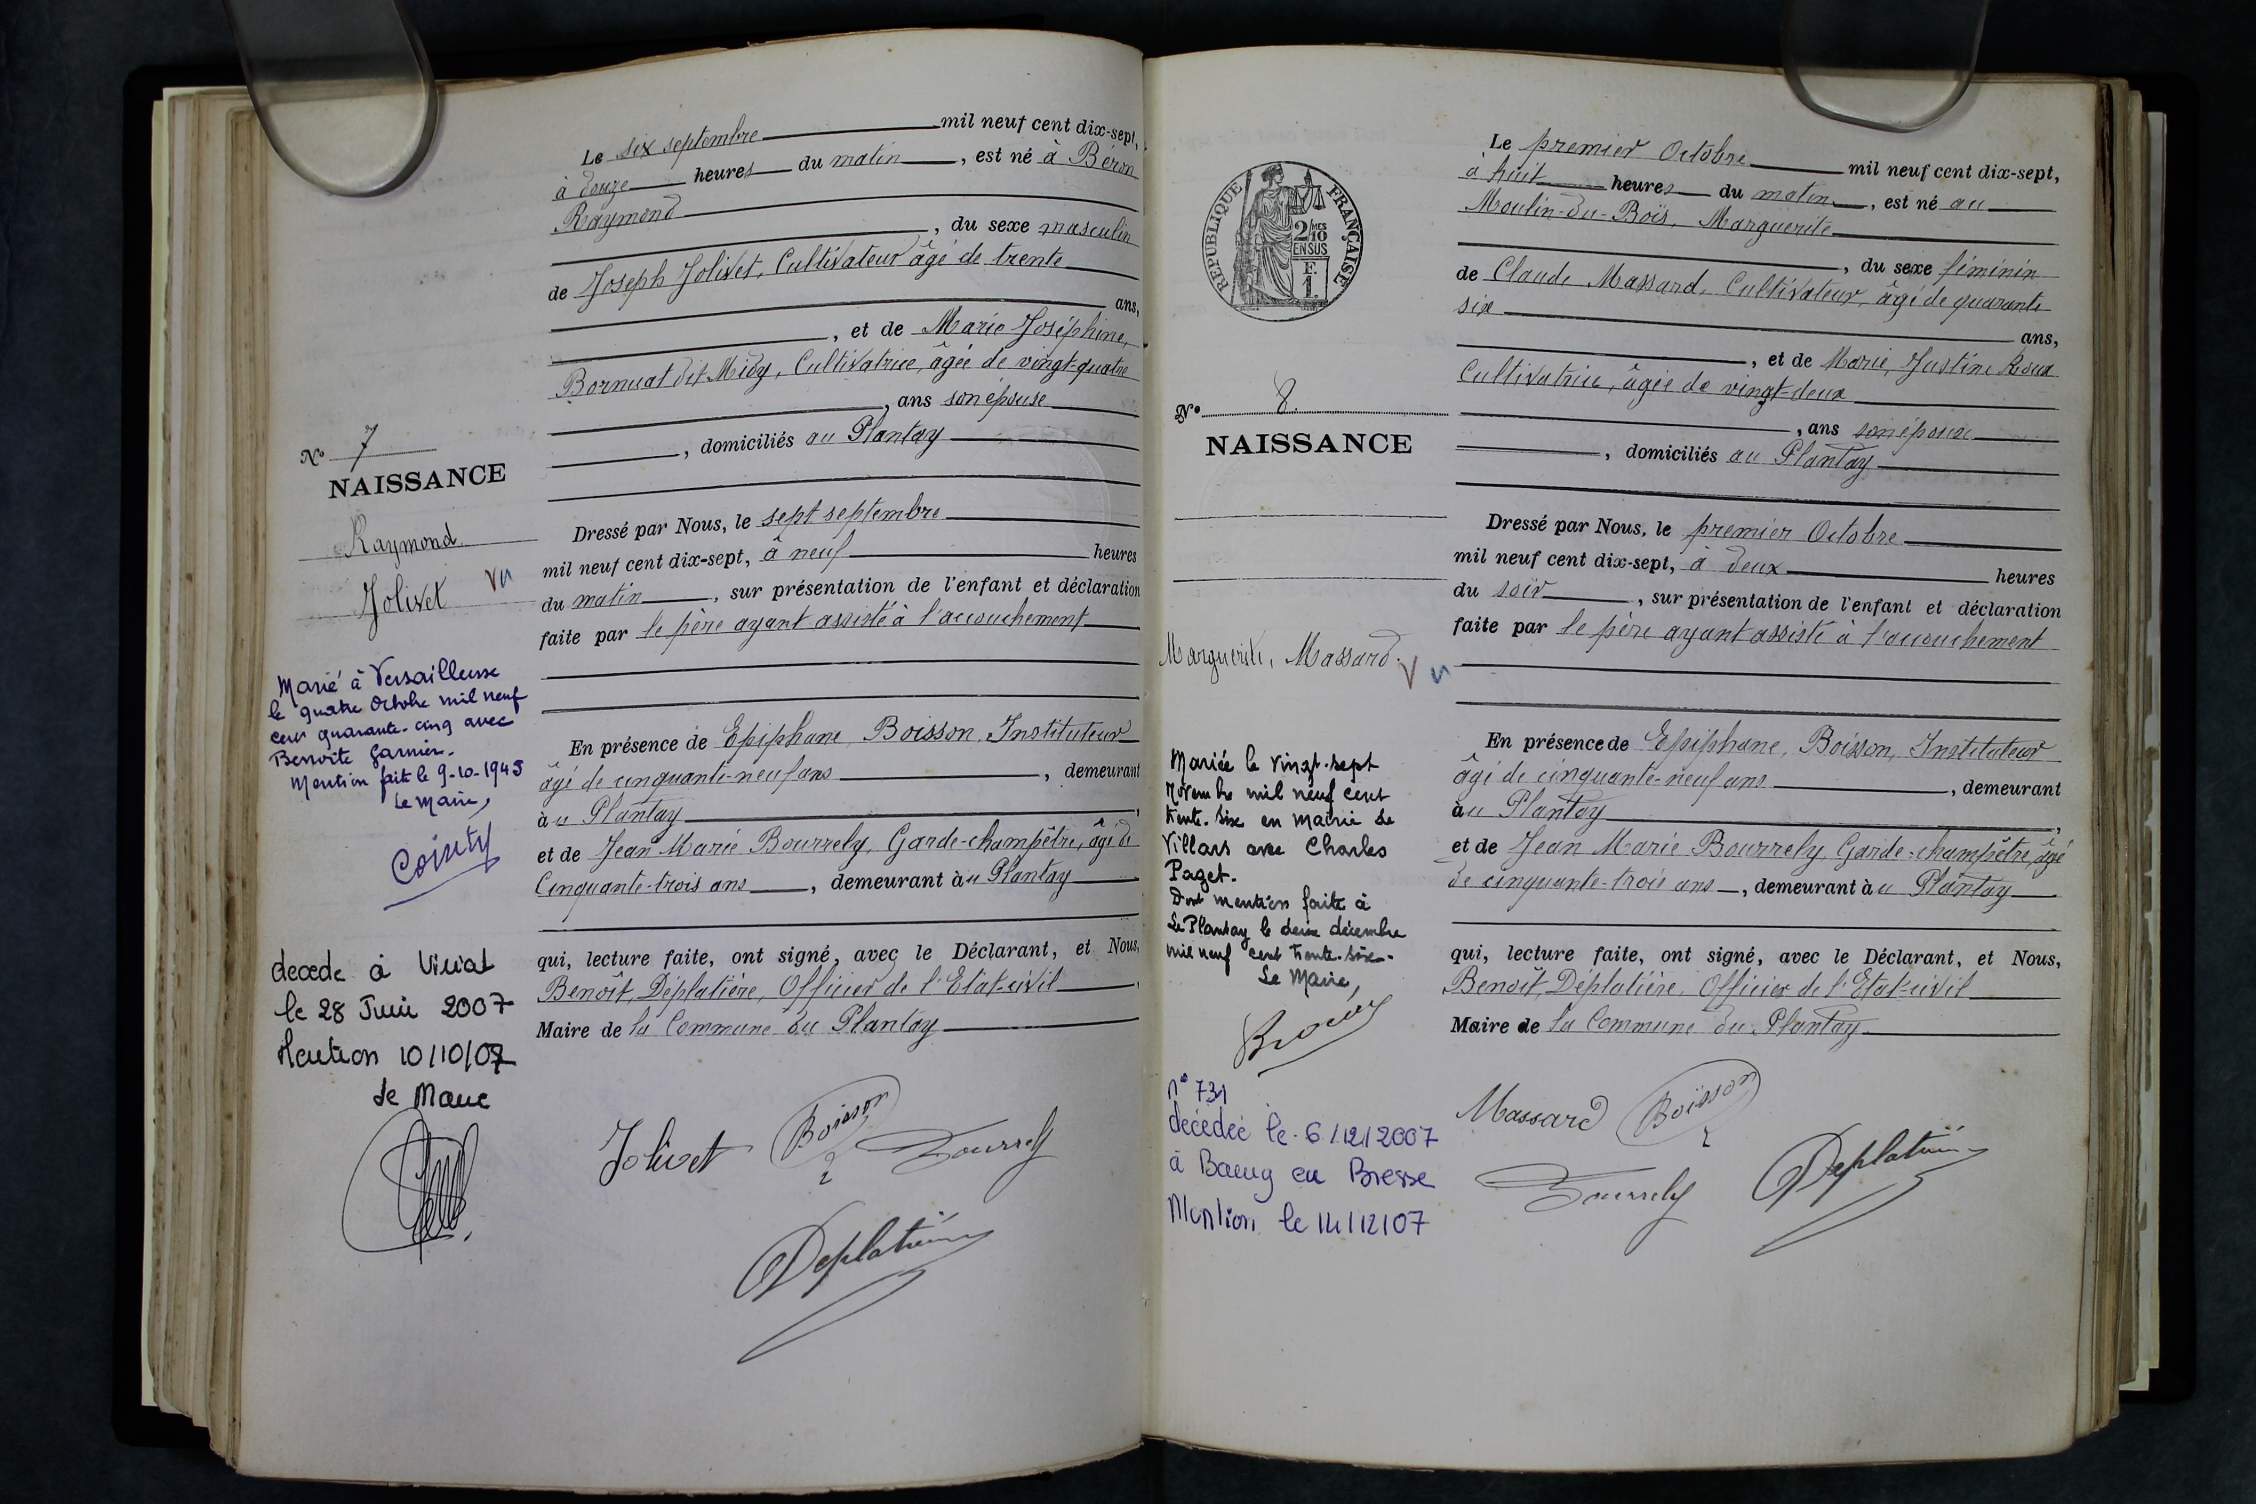 Le six septembre mil neuf cent dix-sept,
à douze heures du matin, est né à Béron
Raymond
, du sexe masculin
de Joseph Jolivet, Cultivateur âgé de trente
ans,
, et de Marie Joséphine,
Bornuat dit Midy, Cultivatrice, âgée de vingt-quatre
, ans son épouse
, domiciliés au Plantay
Dressé par Nous, le sept septembre
mil neuf cent dix-sept, à neuf heures
du matin, sur présentation de l'enfant et déclaration
faite par le père ayant assisté à l'accouchement
En présence de Epiphane Boisson, Instituteur
âgé de cinquante-neuf ans, demeurant
àu Plantay,
et de Jean Marie Bourrely, Garde-champêtre, âgé de
Cinquante-trois ans, demeurant àu Plantay
qui, lecture faite, ont signé, avec le Déclarant, et Nous,
Benoît, Déplatière, Officier de l'Etat-civil,
Maire de la Commune du Plantay
Jolivet Boisson Bourrely
Deplatière
No 7
NAISSANCE
Raymond
Jolivet Vu
Marié à Versailleux
le quatre Octobre mil neuf
cent quarante-cinq avec
Benoite Garnier.
Mention faite le 9-10-1945
Le Maire,
Cointy
decede à Viriat
le 28 Juin 2007
Mention 10/10/07
Le Maire
REPUBLIQUE FRANÇAISE
2/10MES
EN SUS
F.
1
No 8.
NAISSANCE
Marguerite, Massard. Vu
Mariée le vingt-sept
Novembre mil neuf cent
trente-six en mairie de
Villars avec Charles
Paget.
Dont mention faite à
Le Plantay le deux décembre
mil neuf cent trente-six.
Le Maire,
n° 731
décédée le 6/12/2007
à Bourg en Bresse
Mention le 14/12/07
Le premier Octobre mil neuf cent dix-sept,
à huit heures du matin, est né au
Moulin-du-Bois, Marguerite
, du sexe féminin
de Claude Massard, Cultivateur, âgé de quarante
six
ans,
, et de Marie, Justine Roux
Cultivatrice, âgée de vingt-deux
, ans son épouse
, domiciliés au Plantay
Dressé par Nous, le premier Octobre
mil neuf cent dix-sept, à deux heures
du soir, sur présentation de l'enfant et déclaration
faite par le père ayant assisté à l'accouchement
En présence de Epiphane, Boisson, Instituteur
âgé de cinquante-neuf ans, demeurant
àu Plantay,
et de Jean Marie Bourrely, Garde-champêtre, âgé
de cinquante-trois ans, demeurant àu Plantay
qui, lecture faite, ont signé, avec le Déclarant, et Nous,
Benoît, Déplatière, Officier de l'Etat-civil
Maire de la Commune du Plantay
Massard Boisson
Bourrely Deplatière